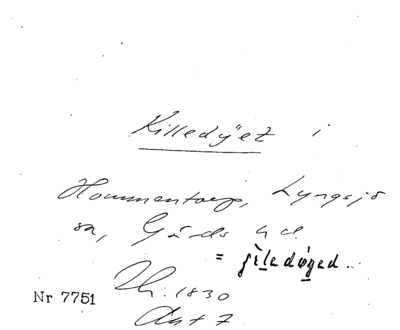 Killedÿet i
Hommentorp, Lyngsjö
sn, Gärds hd
= jìledøȝed.
Nr 7751
Ih. 1830
Aut 7